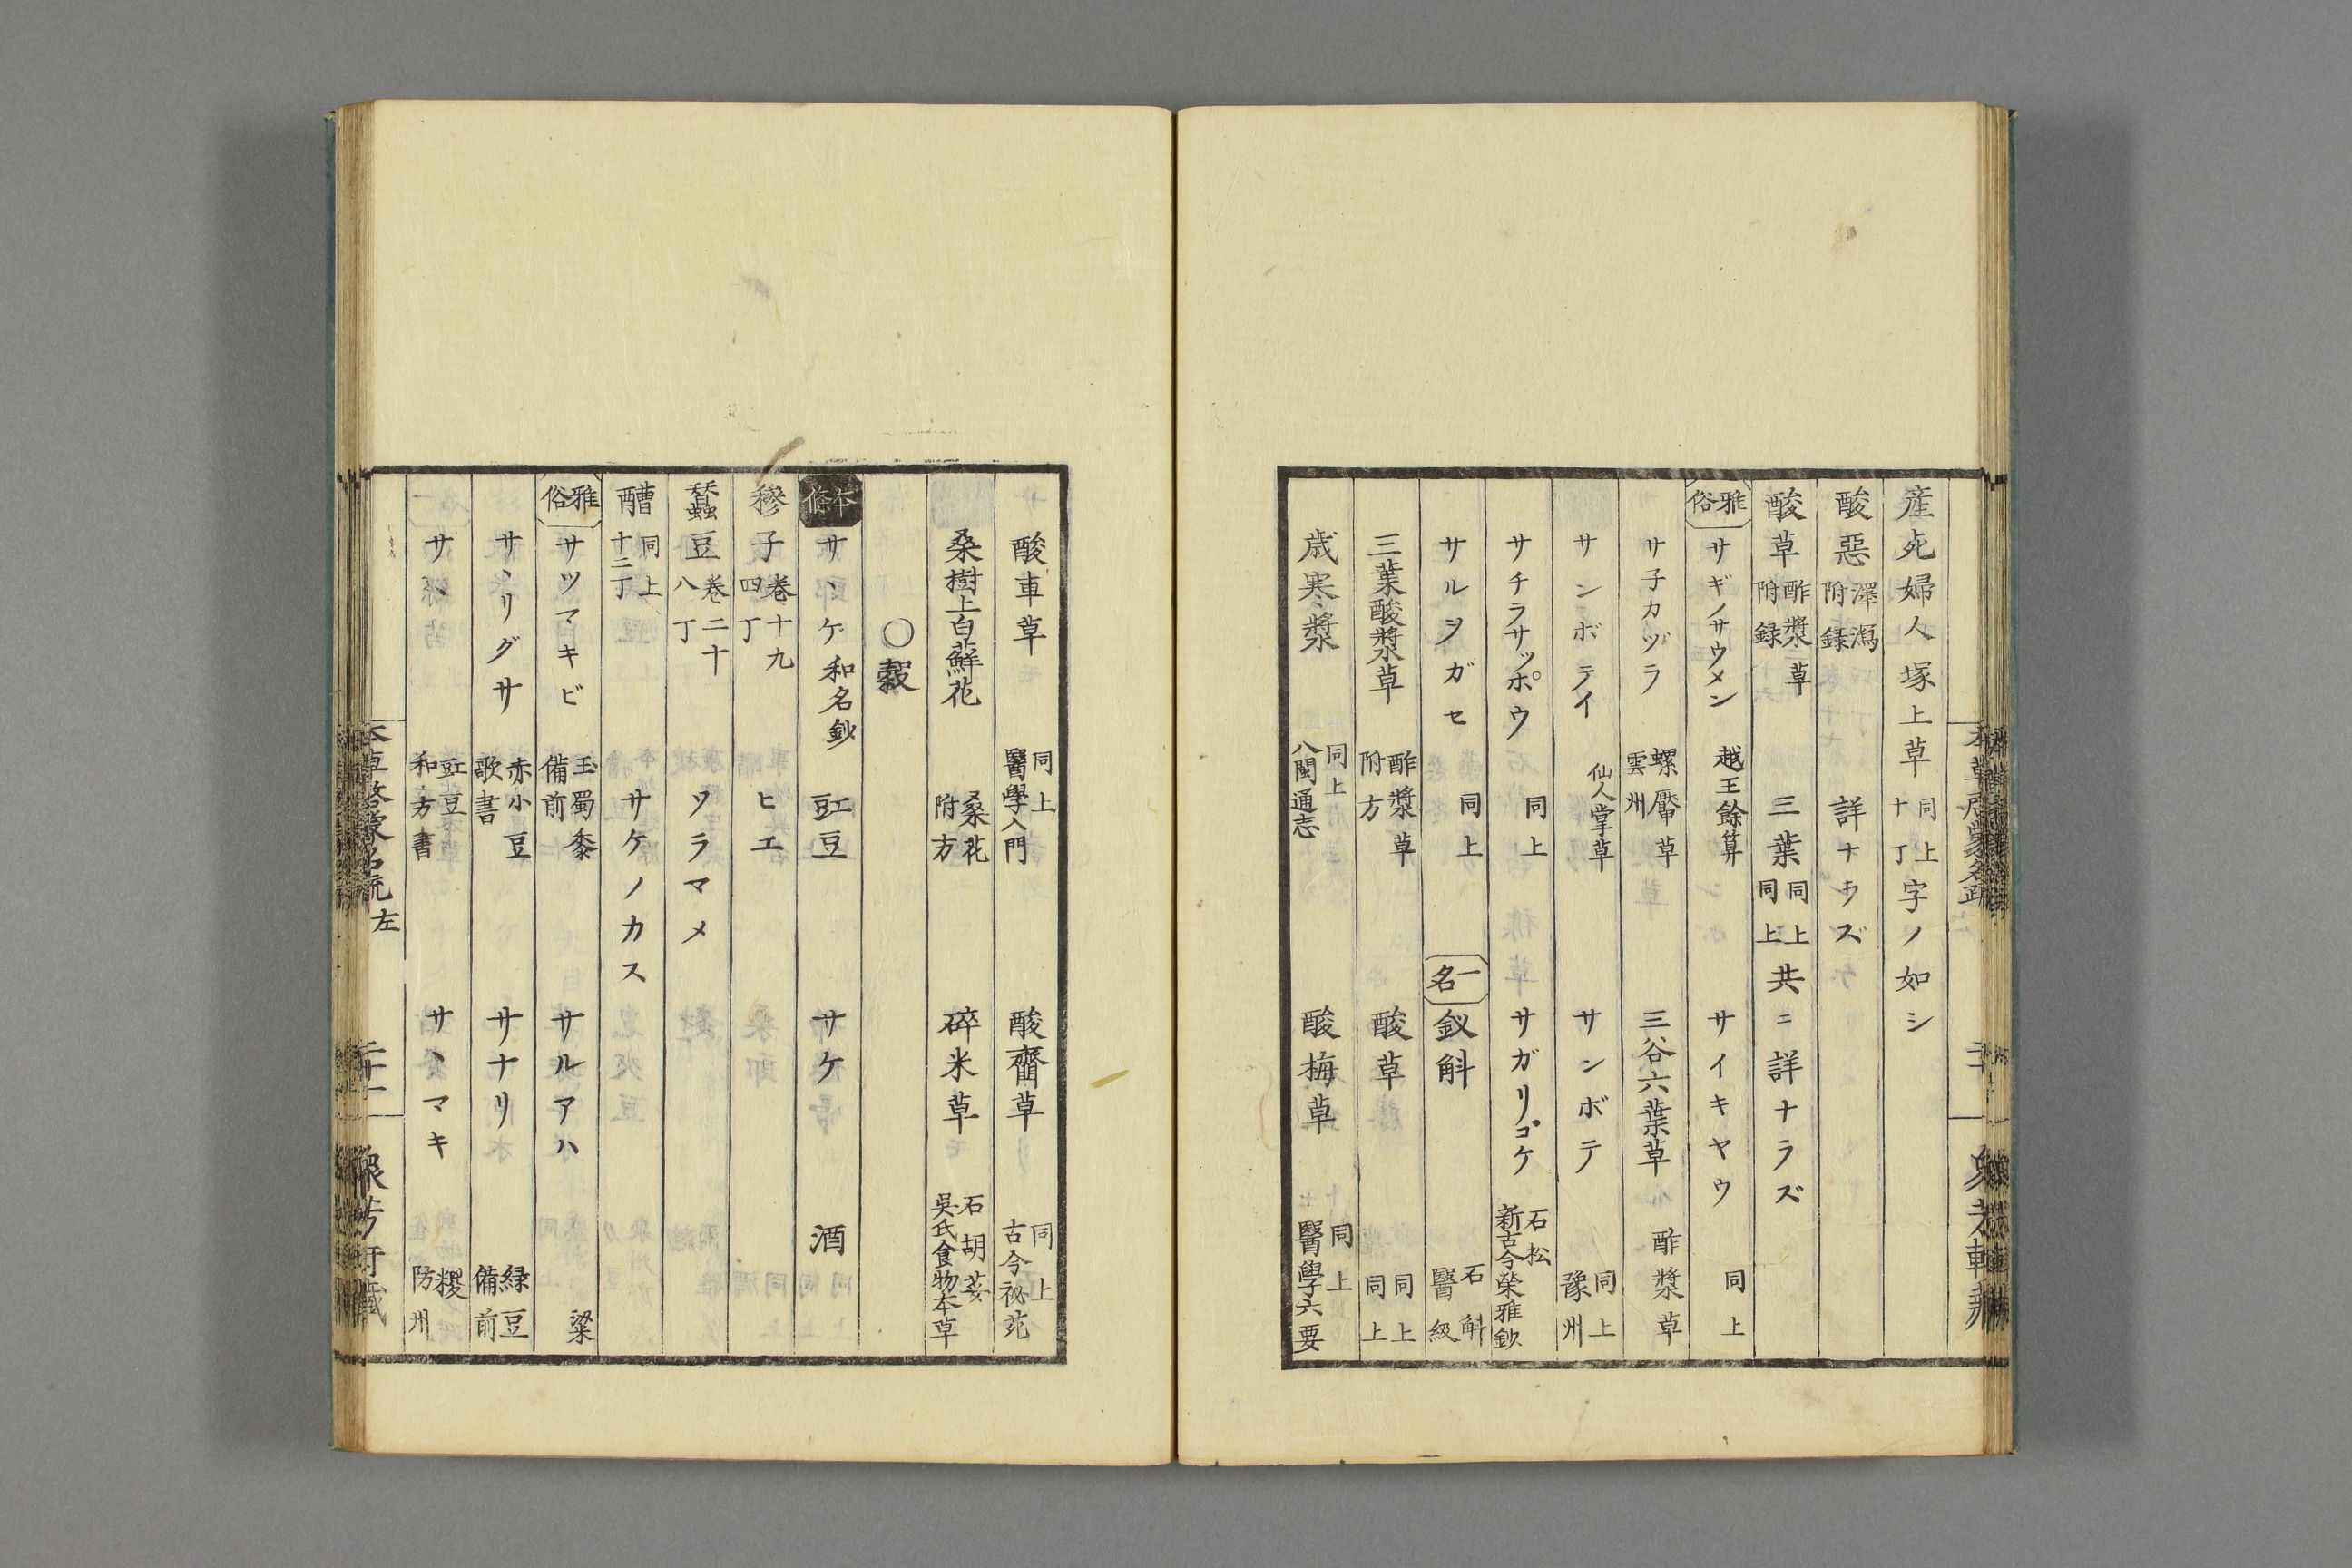 産死婦人塚上草 同上十丁 字ノ如シ
酸惡 澤瀉附録 詳ナラズ
酸草 酢漿草附録 三葉 同上同上 共ニ詳ナラズ
雅俗 サギノサウメン 越王餘算 サイキヤウ 同上
サ子カヅラ 螺厴草雲州 三谷六葉草 酢漿草
サンボテイ 仙人掌草 サンボテ 同上豫州
サチラサッポウ 同上 サガリゴケ 石松新古今榮雅鈔
サルヲガセ 同上 一名 釵斛 石斛醫級
三葉酸漿草 酢漿草附方 酸草 同上同上
歳寒漿 同上八閩通志 酸梅草 同上醫學六要
酸車草 同上醫學入門 酸齋草 同上古今祕苑
桑樹上白蘚花 桑花附方 碎米草 石胡荽吳氏食物本草
○穀
本條 サヽゲ 和名鈔 豇豆 サケ 酒
穇子 卷十九四丁 ヒエ
蠶豆 卷二十八丁 ソラマメ
醩 同上十三丁 サケノカス
雅俗 サツマキビ 玉蜀黍備前 サルアハ 粱
サヽリグサ 赤小豆歌書 サナリ 緑豆備前
サヽ 豇豆和方書 サヽマキ 糉防州
本草啓蒙名疏 左